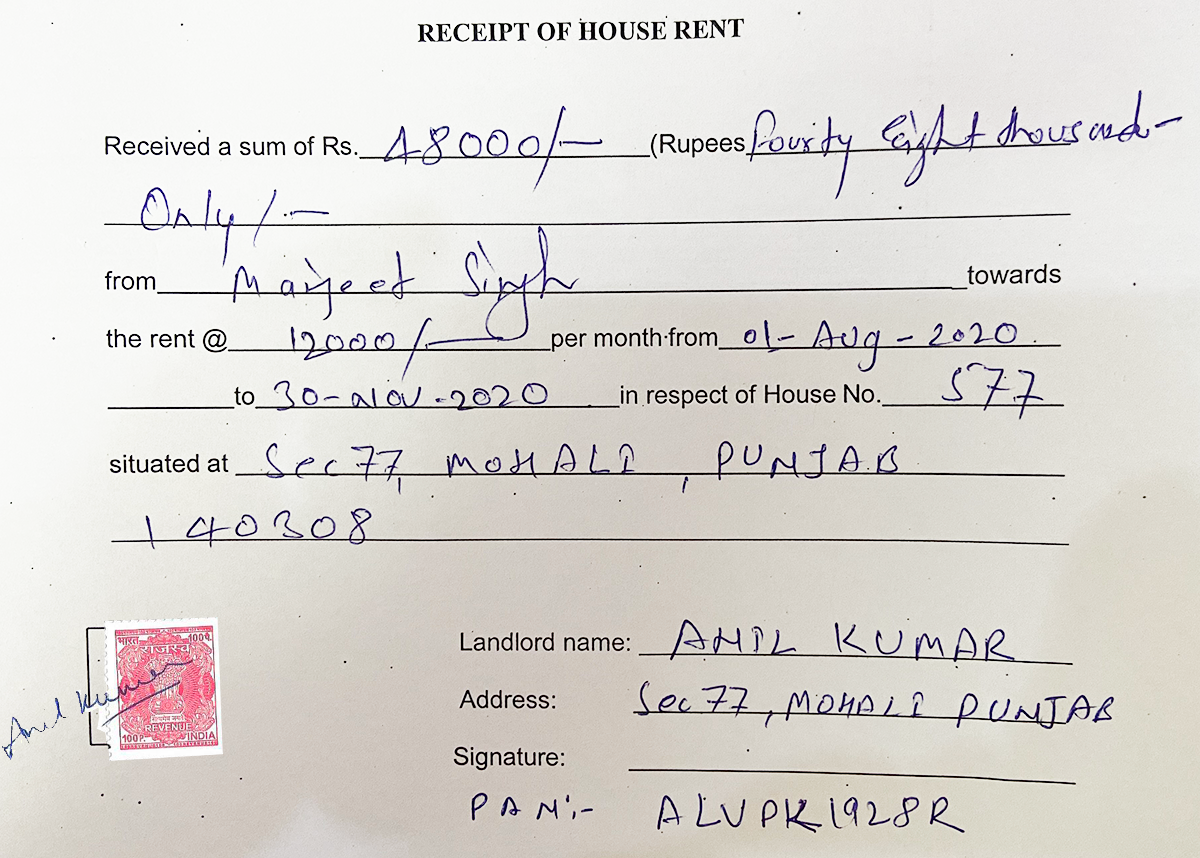 RECEIPT OF HOUSE RENT
Received a sum of Rs. 48000/- (Rupees Fourity Eight thousand-
Only/.-
from Manjeet Singh towards
the rent @ 12000/- per month from 01-Aug-2020.
to 30-Nov-2020 in respect of House No. 577
situated at Sec 77, MOHALI, PUNJAB
140308
भारत 100P.
राजस्व
सत्यमेव जयते
REVENUE
100P. INDIA
Anil Kumar
Landlord name: ANIL KUMAR
Address: Sec 77, MOHALI PUNJAB
Signature:
PAN:- ALVPK1928R